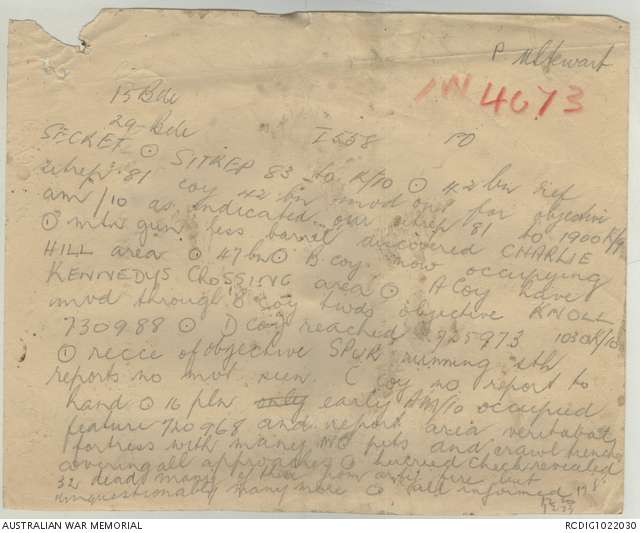 P McStewart
IN 4673
15 Bde
29 Bde I558 10
SECRET ⊙ SITREP 83 to K/10 ⊙ 42 bn ref
sitrep 81 coy 42 bn mvd out for objective
am/10 as indicated our sitrep 81 to 1900K/9
⊙ mtn gun less barrel discovered CHARLIE
HILL area ⊙ 47 bn ⊙ B coy now occupying
KENNEDYS CROSSING area ⊙ A Coy have
mvd through B Coy twds objective KNOLL
730988 ⊙ D Coy reached 725973 1030K/10
⊙ recce of objective SPUR running sth
reports no mvt seen. C Coy no report to
hand ⊙ 16 pln early AM/10 occupied
feature 720968 and report area veritable
fortress with many MG pits and crawl trenches
covering all approaches ⊙ hurried check revealed
32 dead many of them from arty fire but
unquestionably many more ⊙ all informed
AUSTRALIAN WAR MEMORIAL
RCDIG1022030